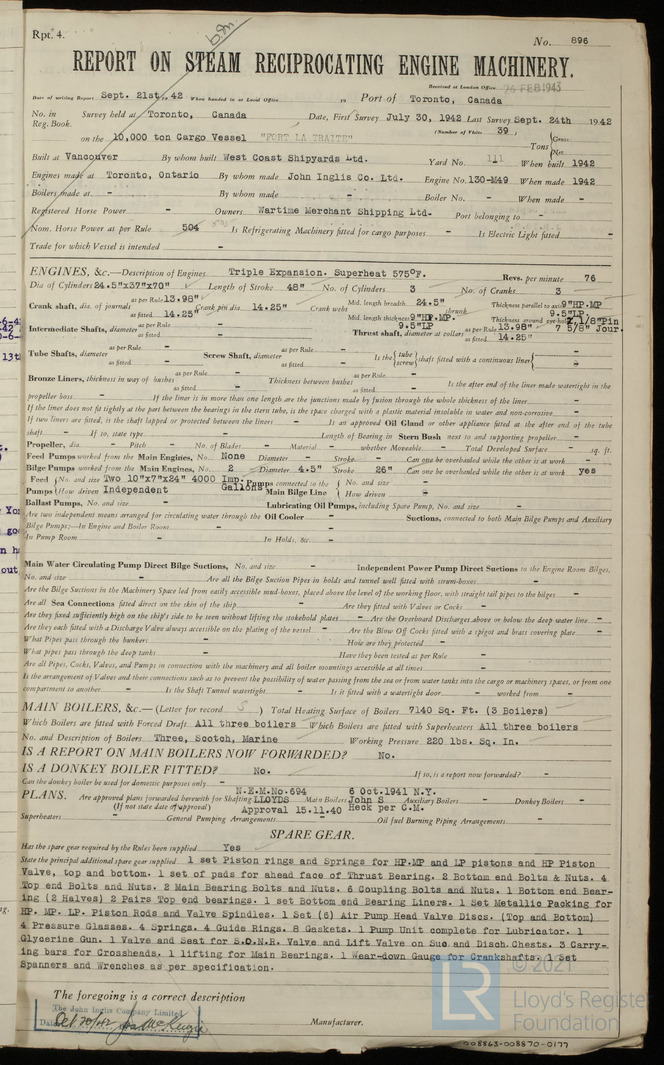 Rpt. 4.
No. 896
REPORT ON STEAM RECIPROCATING ENGINE MACHINERY.
Received at London Office 26 FEB 1943
Date of writing Report Sept. 21st, 42 When handed in at Local Office 19 Port of Toronto, Canada
No. in Reg. Book. Survey held at Toronto, Canada Date, First Survey July 30, 1942 Last Survey Sept. 24th 1942
(Number of Visits 39 )
on the 10,000 ton Cargo Vessel "FORT LA TRAITE" Tons { Gross Net
Built at Vancouver By whom built West Coast Shipyards Ltd. Yard No. 111 When built 1942
Engines made at Toronto, Ontario By whom made John Inglis Co. Ltd. Engine No. 130-M49 When made 1942
Boilers made at - By whom made - Boiler No. - When made -
Registered Horse Power - Owners Wartime Merchant Shipping Ltd. Port belonging to -
Nom. Horse Power as per Rule 504 Is Refrigerating Machinery fitted for cargo purposes - Is Electric Light fitted -
Trade for which Vessel is intended -
ENGINES, &c.—Description of Engines Triple Expansion. Superheat 575°F. Revs. per minute 76
Dia of Cylinders 24.5"x37"x70" Length of Stroke 48" No. of Cylinders 3 No. of Cranks 3
Crank shaft, dia. of journals as per Rule 13.98" as fitted 14.25" Crank pin dia 14.25" Crank webs Mid. length breadth 24.5" Mid. length thickness 9"HP.MP 9.5"LP shrunk Thickness parallel to axis 9"HP.MP 9.5"LP Thickness around eye-hole 7 1/8"Pin 7 5/8" Jour.
Intermediate Shafts, diameter as per Rule - as fitted - Thrust shaft, diameter at collars as per Rule 13.98" as fitted 14.25"
Tube Shafts, diameter as per Rule - as fitted - Screw Shaft, diameter as per Rule - as fitted - Is the { tube screw } shaft fitted with a continuous liner { -
Bronze Liners, thickness in way of bushes as per Rule - as fitted - Thickness between bushes as per Rule - as fitted - Is the after end of the liner made watertight in the
propeller boss - If the liner is in more than one length are the junctions made by fusion through the whole thickness of the liner -
If the liner does not fit tightly at the part between the bearings in the stern tube, is the space charged with a plastic material insoluble in water and non-corrosive -
If two liners are fitted, is the shaft lapped or protected between the liners - Is an approved Oil Gland or other appliance fitted at the after end of the tube
shaft - If so, state type - Length of Bearing in Stern Bush next to and supporting propeller -
Propeller, dia. - Pitch - No. of Blades - Material - whether Moveable - Total Developed Surface - sq. ft.
Feed Pumps worked from the Main Engines, No. None Diameter - Stroke - Can one be overhauled while the other is at work -
Bilge Pumps worked from the Main Engines, No. 2 Diameter 4.5" Stroke 26" Can one be overhauled while the other is at work yes
Feed Pumps { No. and size Two 10"x7"x24" 4000 Imp. Gallons Pumps connected to the Main Bilge Line { No. and size -
How driven Independent How driven -
Ballast Pumps, No. and size - Lubricating Oil Pumps, including Spare Pump, No. and size -
Are two independent means arranged for circulating water through the Oil Cooler - Suctions, connected to both Main Bilge Pumps and Auxiliary
Bilge Pumps;—In Engine and Boiler Room -
In Pump Room - In Holds, &c. -
Main Water Circulating Pump Direct Bilge Suctions, No. and size - Independent Power Pump Direct Suctions to the Engine Room Bilges,
No. and size - Are all the Bilge Suction Pipes in holds and tunnel well fitted with strum-boxes -
Are the Bilge Suctions in the Machinery Space led from easily accessible mud-boxes, placed above the level of the working floor, with straight tail pipes to the bilges -
Are all Sea Connections fitted direct on the skin of the ship - Are they fitted with Valves or Cocks -
Are they fixed sufficiently high on the ship's side to be seen without lifting the stokehold plates - Are the Overboard Discharges above or below the deep water line -
Are they each fitted with a Discharge Valve always accessible on the plating of the vessel - Are the Blow Off Cocks fitted with a spigot and brass covering plate -
What Pipes pass through the bunkers - How are they protected -
What pipes pass through the deep tanks - Have they been tested as per Rule -
Are all Pipes, Cocks, Valves, and Pumps in connection with the machinery and all boiler mountings accessible at all times -
Is the arrangement of Valves and their connections such as to prevent the possibility of water passing from the sea or from water tanks into the cargo or machinery spaces, or from one
compartment to another - Is the Shaft Tunnel watertight - Is it fitted with a watertight door - worked from -
MAIN BOILERS, &c.—(Letter for record S ) Total Heating Surface of Boilers 7140 Sq. Ft. (3 Boilers)
Which Boilers are fitted with Forced Draft All three boilers Which Boilers are fitted with Superheaters All three boilers
No. and Description of Boilers Three, Scotch, Marine Working Pressure 220 lbs. Sq. In.
IS A REPORT ON MAIN BOILERS NOW FORWARDED? No.
IS A DONKEY BOILER FITTED? No. If so, is a report now forwarded? -
Can the donkey boiler be used for domestic purposes only -
PLANS. Are approved plans forwarded herewith for Shafting N.E.M.No.694 LLOYDS Approval 15.11.40 Main Boilers 6 Oct.1941 N.Y. John S Heck per C.M. Auxiliary Boilers - Donkey Boilers -
(If not state date of approval)
Superheaters - General Pumping Arrangements - Oil fuel Burning Piping Arrangements -
SPARE GEAR.
Has the spare gear required by the Rules been supplied Yes
State the principal additional spare gear supplied 1 set Piston rings and Springs for HP.MP and LP pistons and HP Piston
Valve, top and bottom. 1 set of pads for ahead face of Thrust Bearing. 2 Bottom end Bolts & Nuts. 4
Top end Bolts and Nuts. 2 Main Bearing Bolts and Nuts. 6 Coupling Bolts and Nuts. 1 Bottom end Bear-
ing (2 Halves) 2 Pairs Top end bearings. 1 set Bottom end Bearing Liners. 1 Set Metallic Packing for
HP. MP. LP. Piston Rods and Valve Spindles. 1 Set (6) Air Pump Head Valve Discs. (Top and Bottom)
4 Pressure Glasses. 4 Springs. 4 Guide Rings. 8 Gaskets. 1 Pump Unit complete for Lubricator. 1
Glycerine Gun. 1 Valve and Seat for S.D.N.R. Valve and Lift Valve on Suc and Disch.Chests. 3 Carry-
ing bars for Crossheads. 1 lifting for Main Bearings. 1 Wear-down Gauge for Crankshafts. 1 Set
Spanners and Wrenches as per specification.
The foregoing is a correct description
The John Inglis Company Limited
Date Oct 20/42
Manufacturer.
LR
© 2021
Lloyd's Register
Foundation
008863-008870-0177